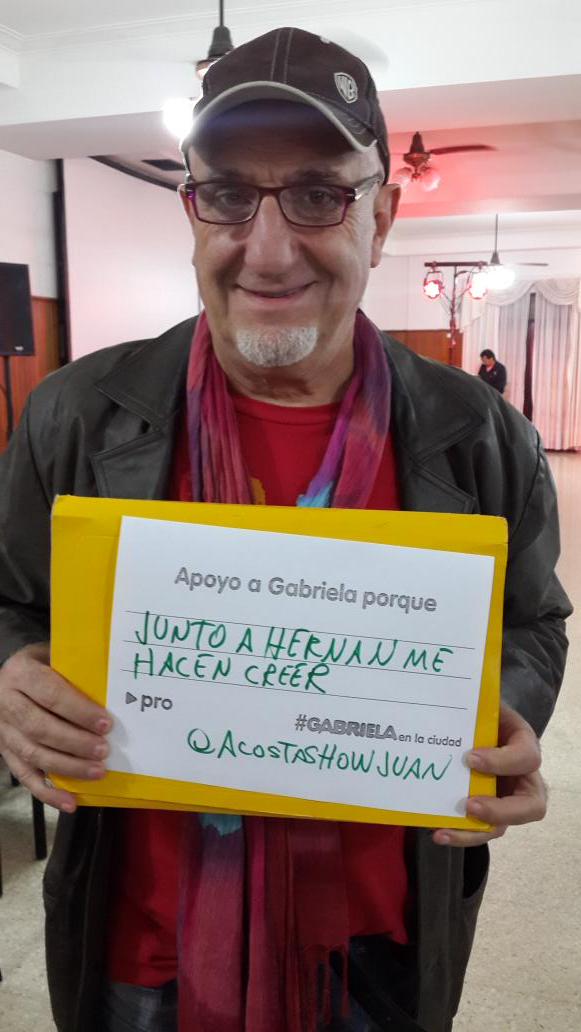 Apoyo a Gabriela porque
JUNTO A HERNAN ME
HACEN CREER
pro
#GABRIELA en la ciudad
@ACOSTASHOWJUAN